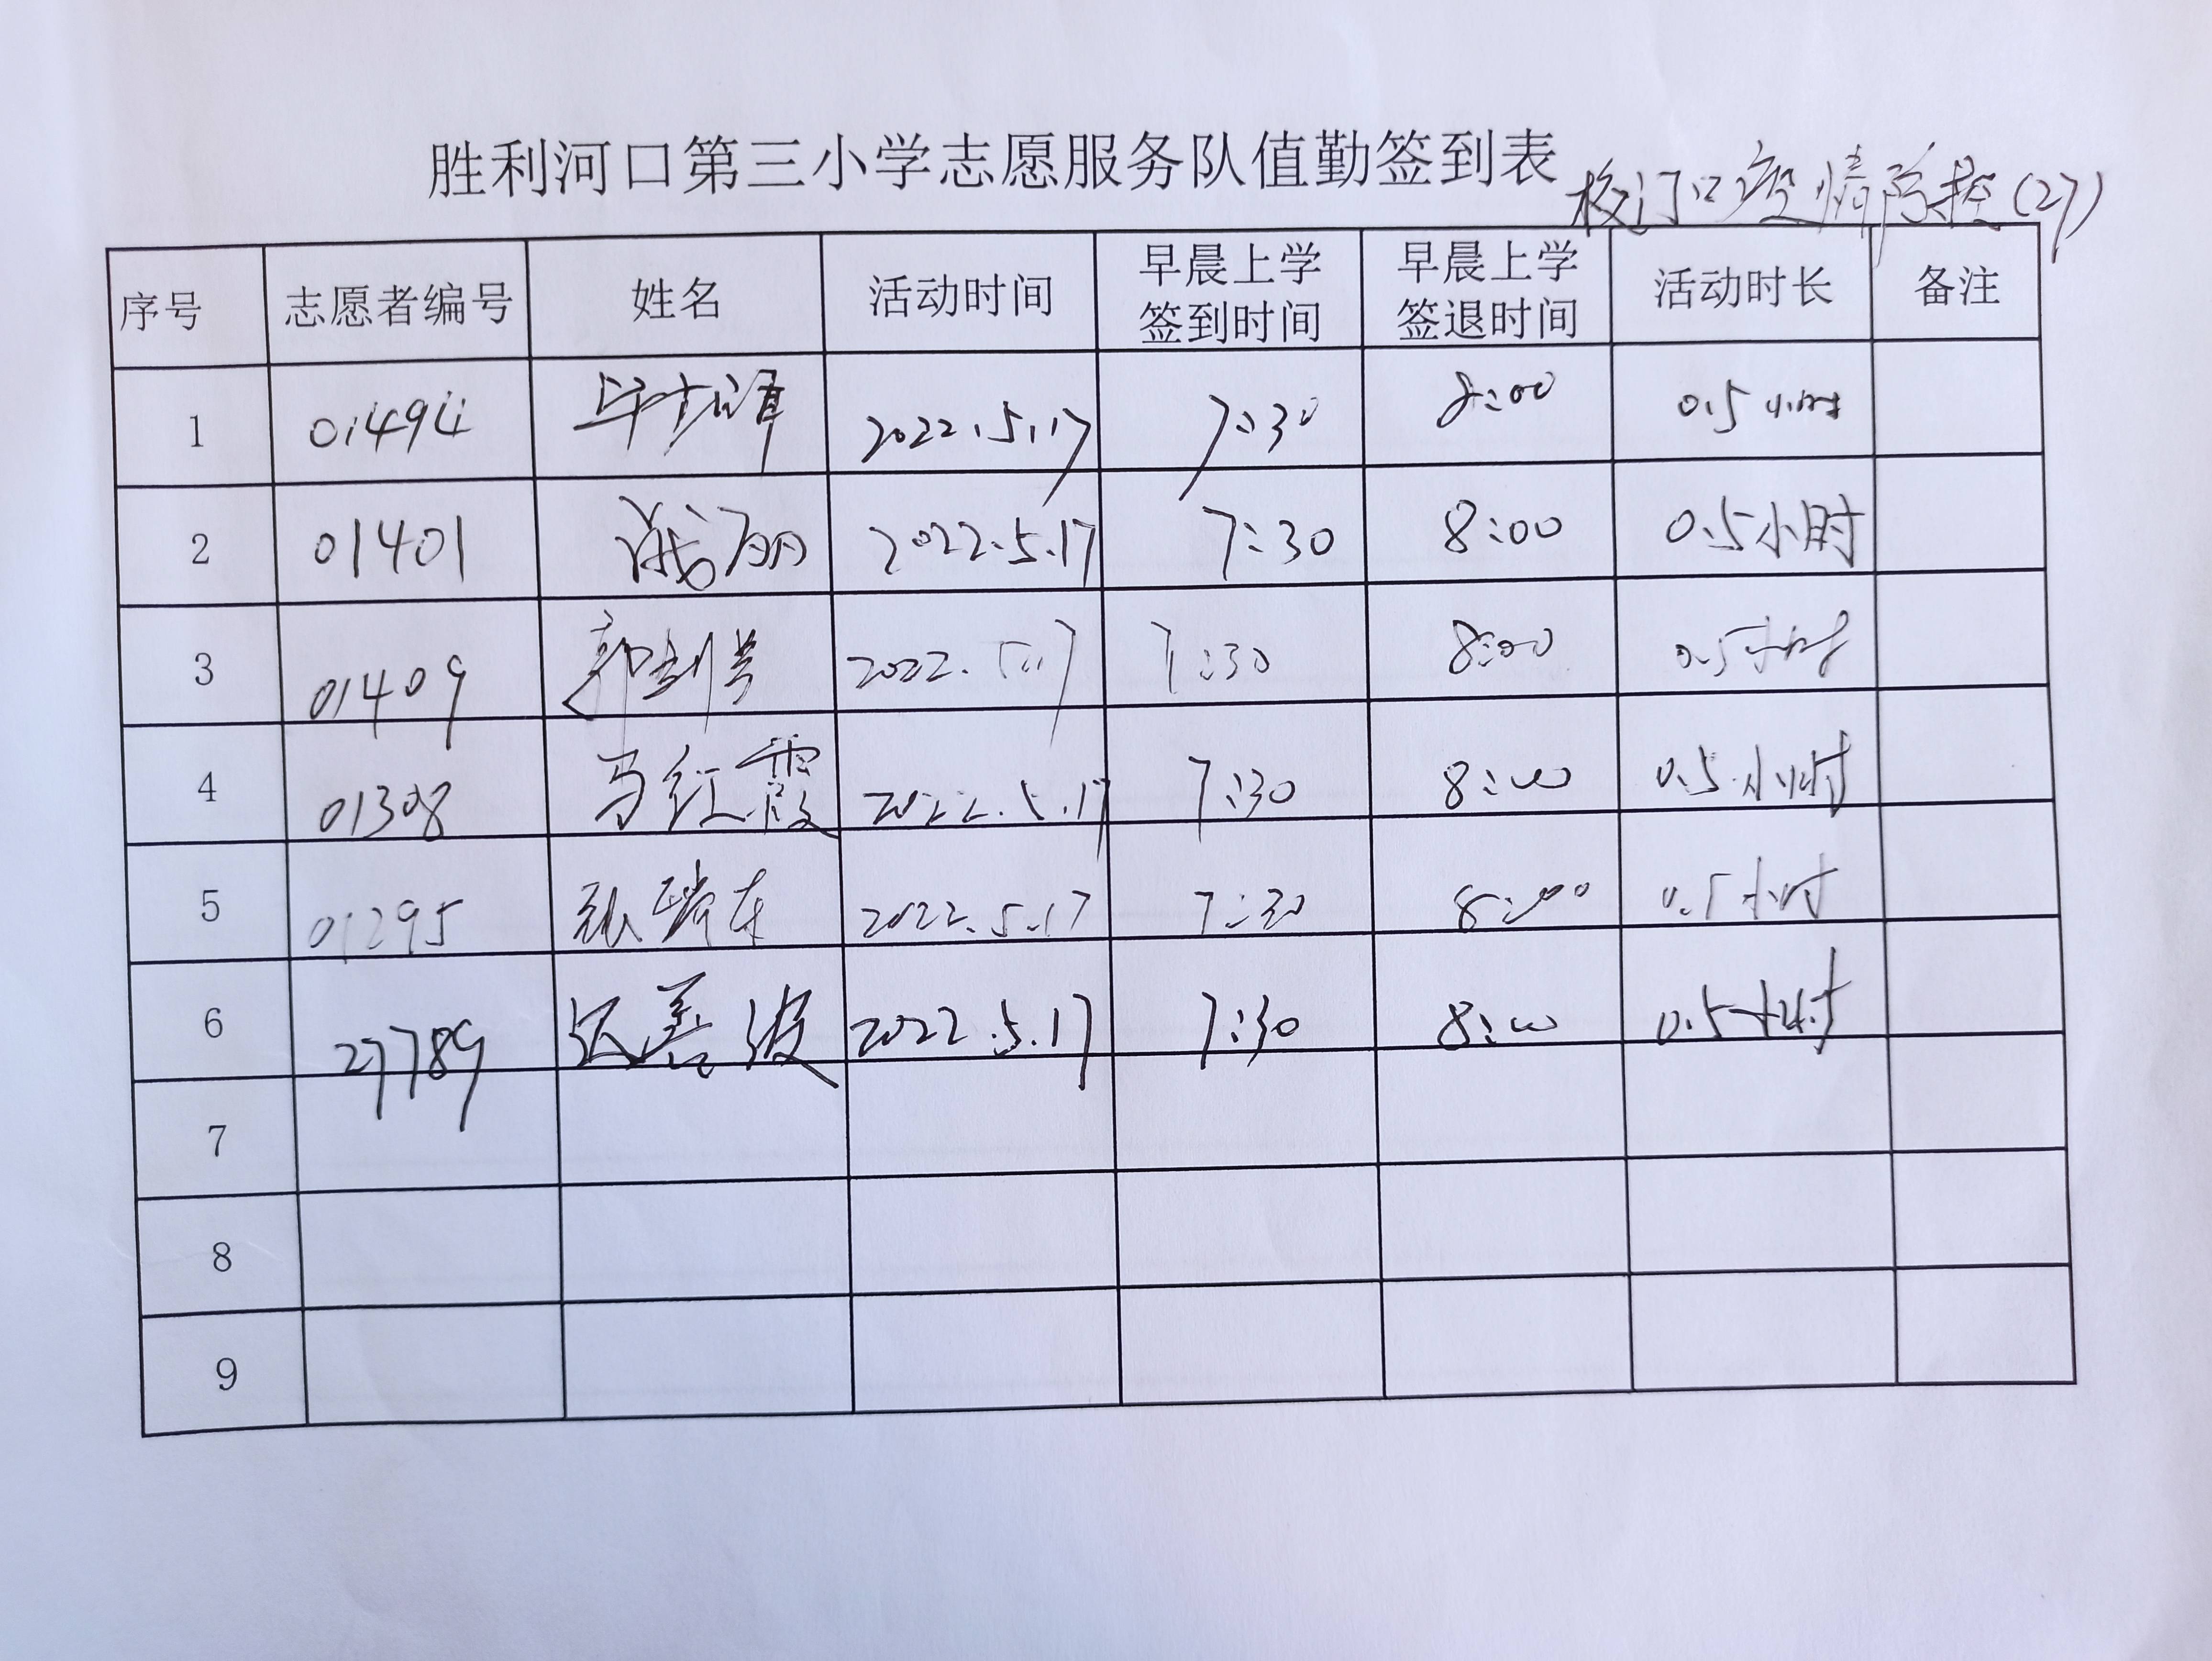 胜利河口第三小学志愿服务队值勤签到表
校门口疫情防控(27)
序号 志愿者编号 姓名 活动时间 早晨上学签到时间 早晨上学签退时间 活动时长 备注
1 01494 2022.5.17 7:30 8:00 0.5小时
2 01401 2022.5.17 7:30 8:00 0.5小时
3 01409 2022.5.17 7:30 8:00 0.5小时
4 01308 马红霞 2022.5.17 7:30 8:00 0.5小时
5 01295 张瑞东 2022.5.17 7:30 8:00 0.5小时
6 27789 迟善波 2022.5.17 7:30 8:00 0.5小时
7
8
9